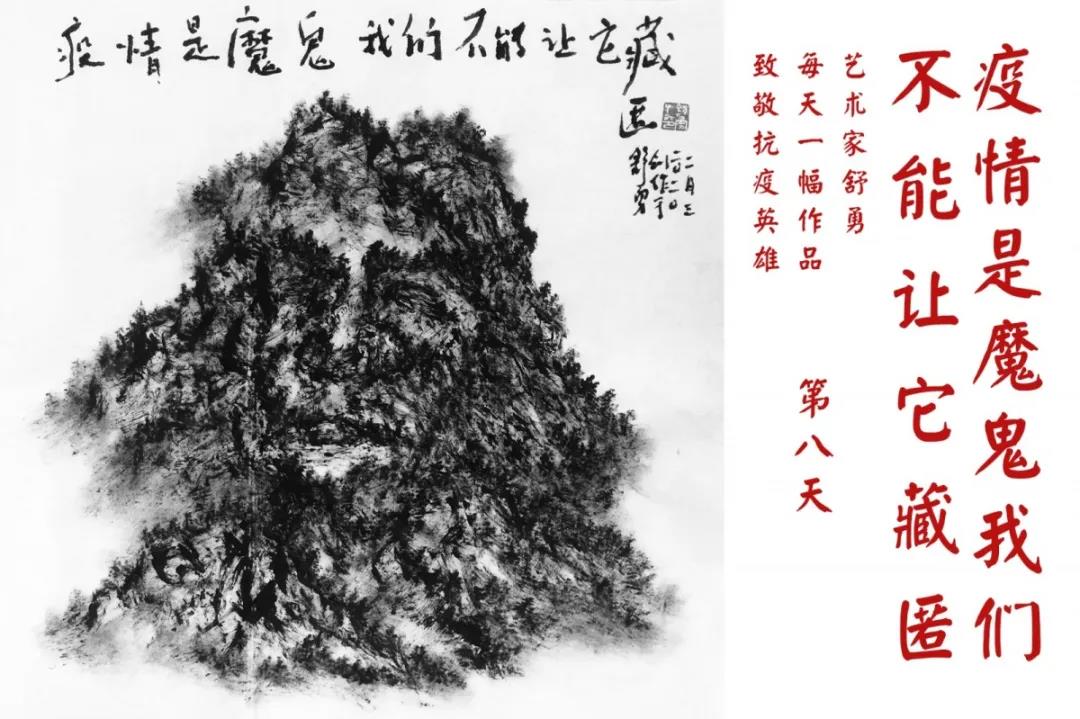 疫情是魔鬼 我们不能让它藏
匿
舒勇
创作于
二月三
疫情是魔鬼我们
不能让它藏匿
艺术家舒勇
每天一幅作品 第八天
致敬抗疫英雄